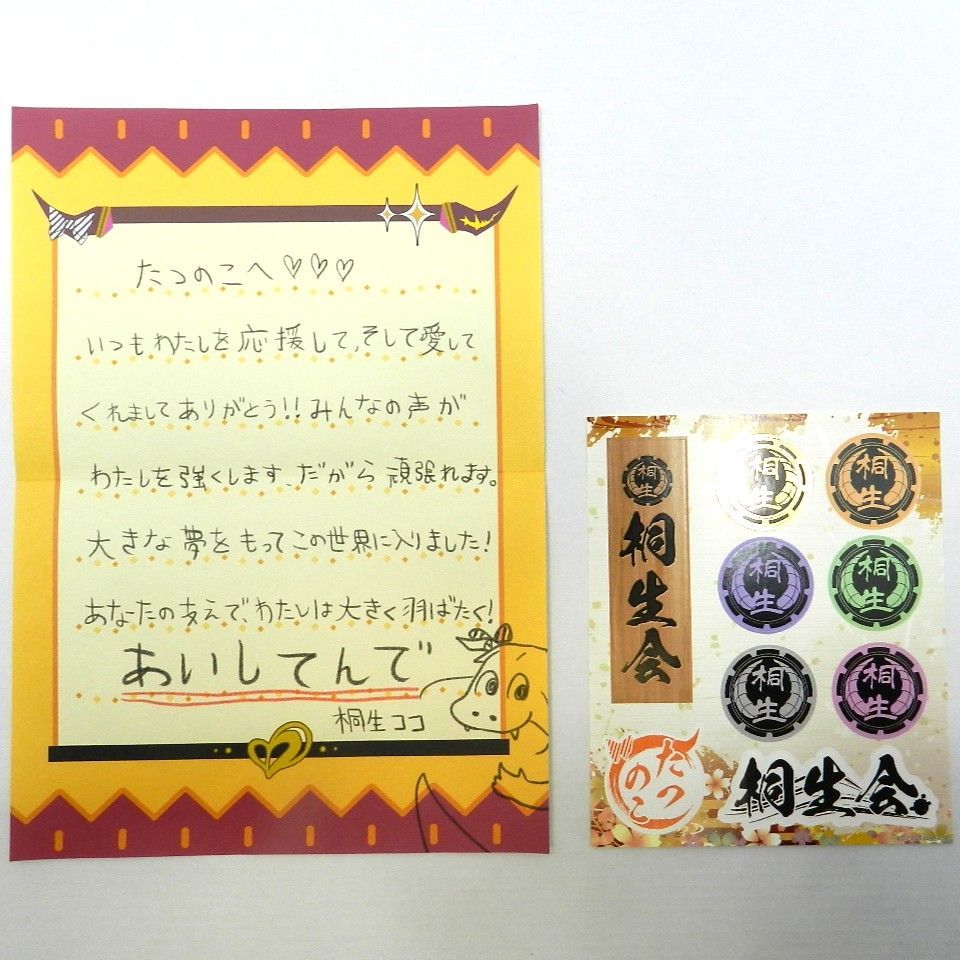 たつのこへ♡♡♡
いつもわたしを応援して、そして愛して
くれましてありがとう!!みんなの声が
わたしを強くします、だがら頑張れます。
大きな夢をもってこの世界に入りました!
あなたの支えで、わたしは大きく羽ばたく!
あいしてんで
桐生ココ
桐生
桐生会
桐生
桐生
桐生
桐生
桐生
桐生
たつのこ
桐生会